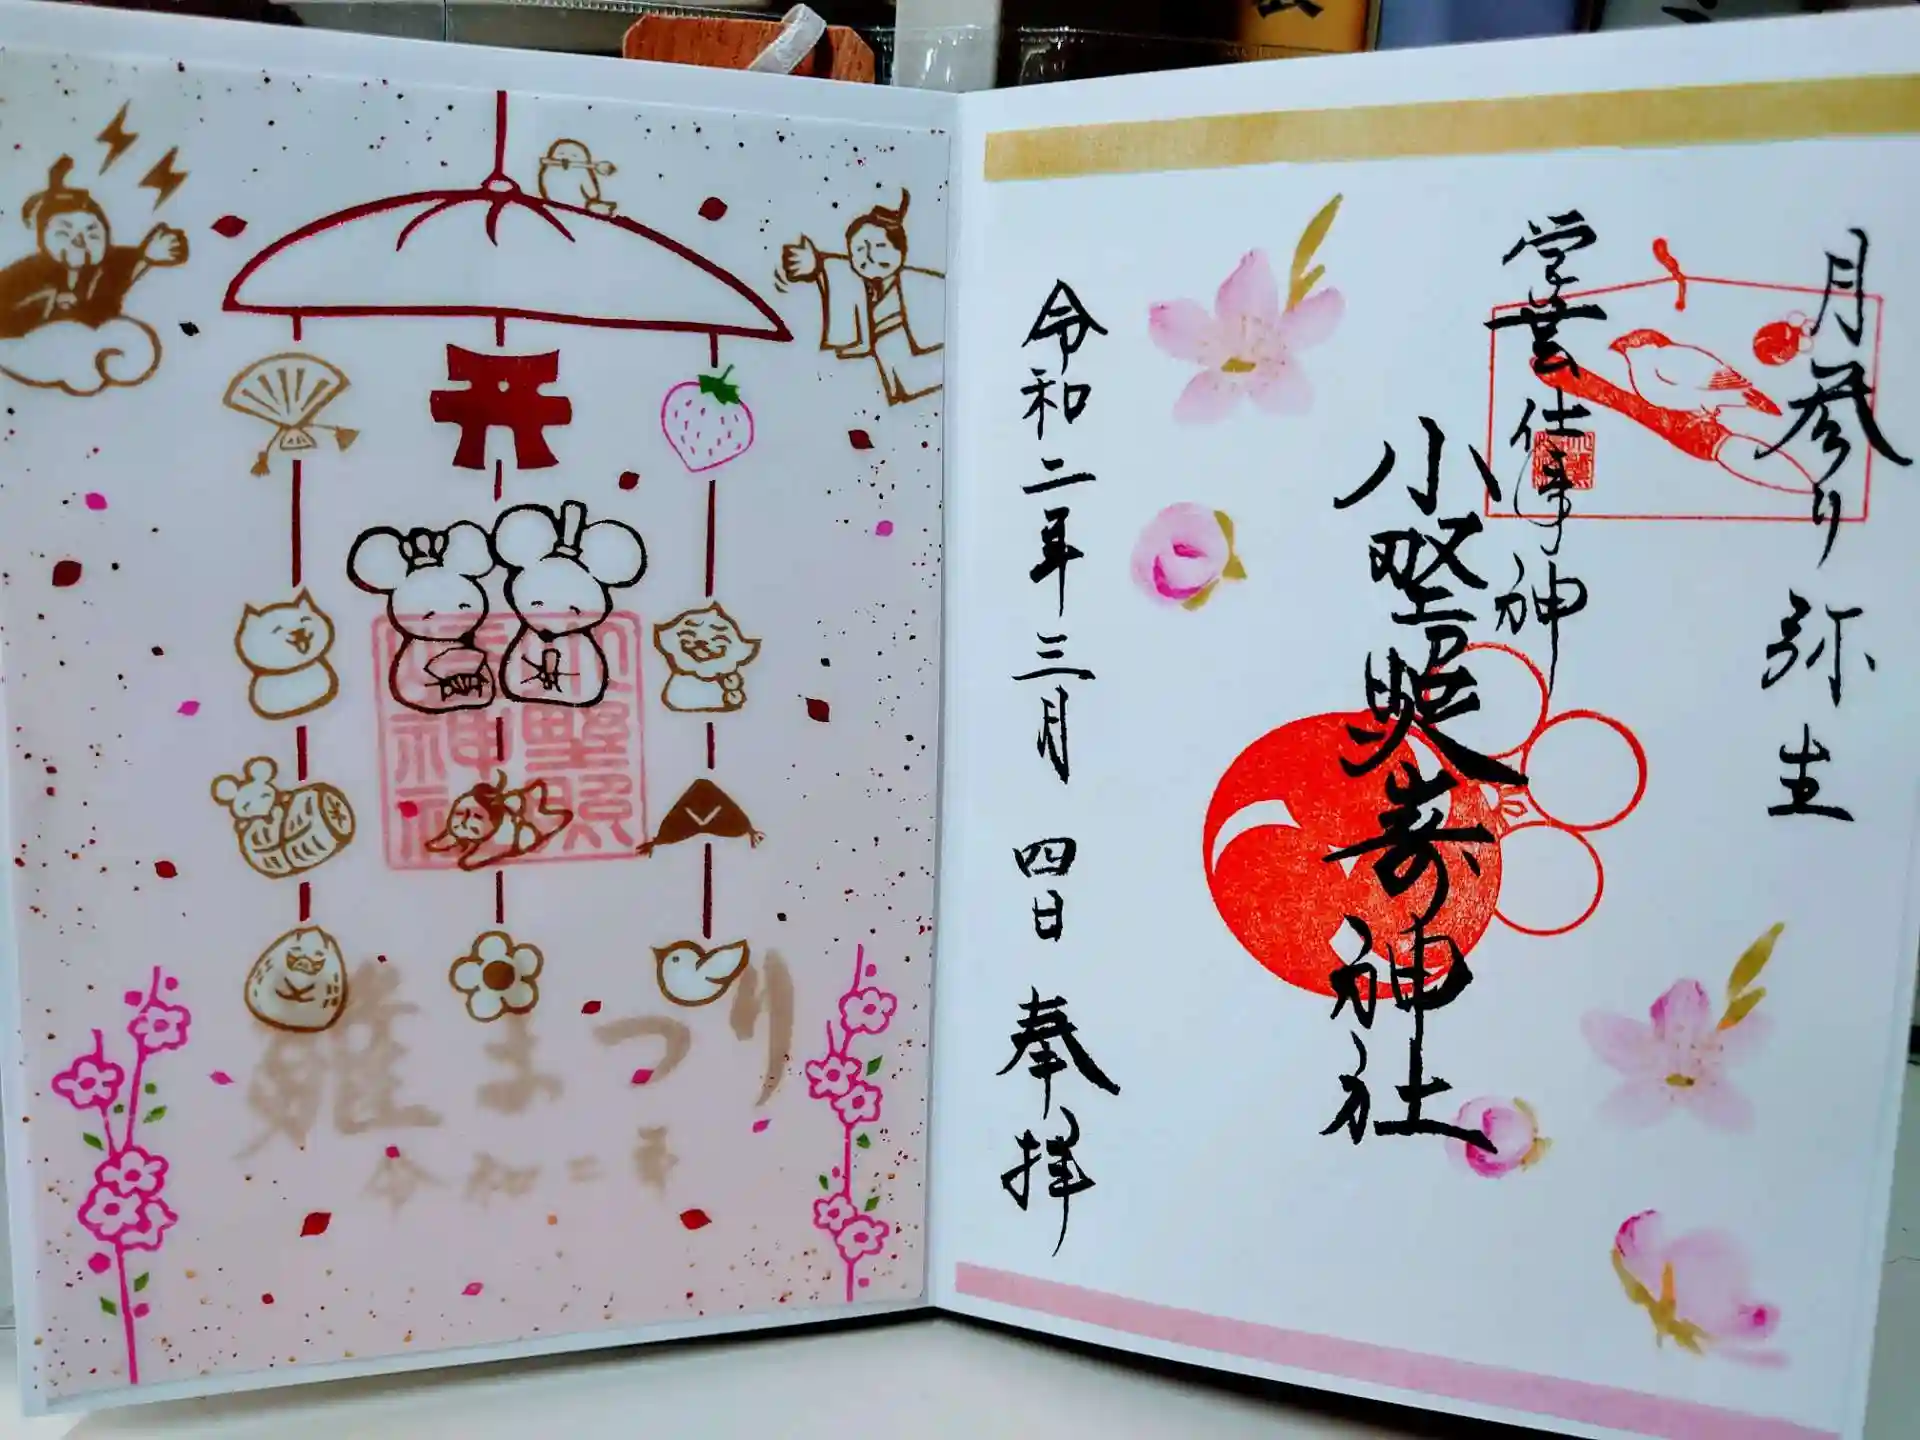 月参り 弥生
学芸仕事神
小墅照嵜神社
令和二年三月 四日 奉拝
雛まつり
令和二年